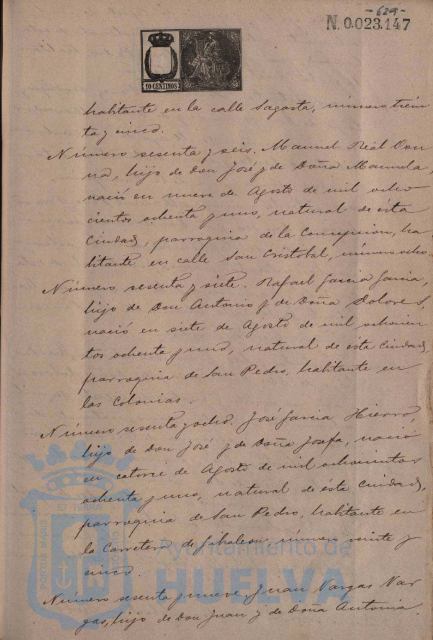 -629-
N. 0.023.147
10 CENTIMOS
habitante en la calle Sagasta, número trein
ta y cinco.
Número sesenta y seis. Manuel Real
na, hijo de Don José y de Doña Manuela,
nació en nueve de Agosto de mil ocho
cientos ochenta y uno, natural de ésta
Ciudad, parroquia de la Concepción, ha
bitante en calle San Cristobal, número ocho.
Número sesenta y siete. Rafael Garcia Garcia,
hijo de Don Antonio y de Doña Dolores,
nació en siete de Agosto de mil ochocien
tos ochenta y uno, natural de esta Ciudad,
parroquia de San Pedro, habitante en
las Colonias.
Número sesenta y ocho. José Garcia Hierro,
hijo de Don José y de Doña Josefa, nació
en catorce de Agosto de mil ochocientos
ochenta y uno, natural de ésta Ciudad,
parroquia de San Pedro, habitante en
la Carretera de Gibraleon, número veinte y
cinco.
Número sesenta y nueve. Juan Vargas Var
gas, hijo de Don Juan y de Doña Antonia
Ayuntamiento de
HUELVA